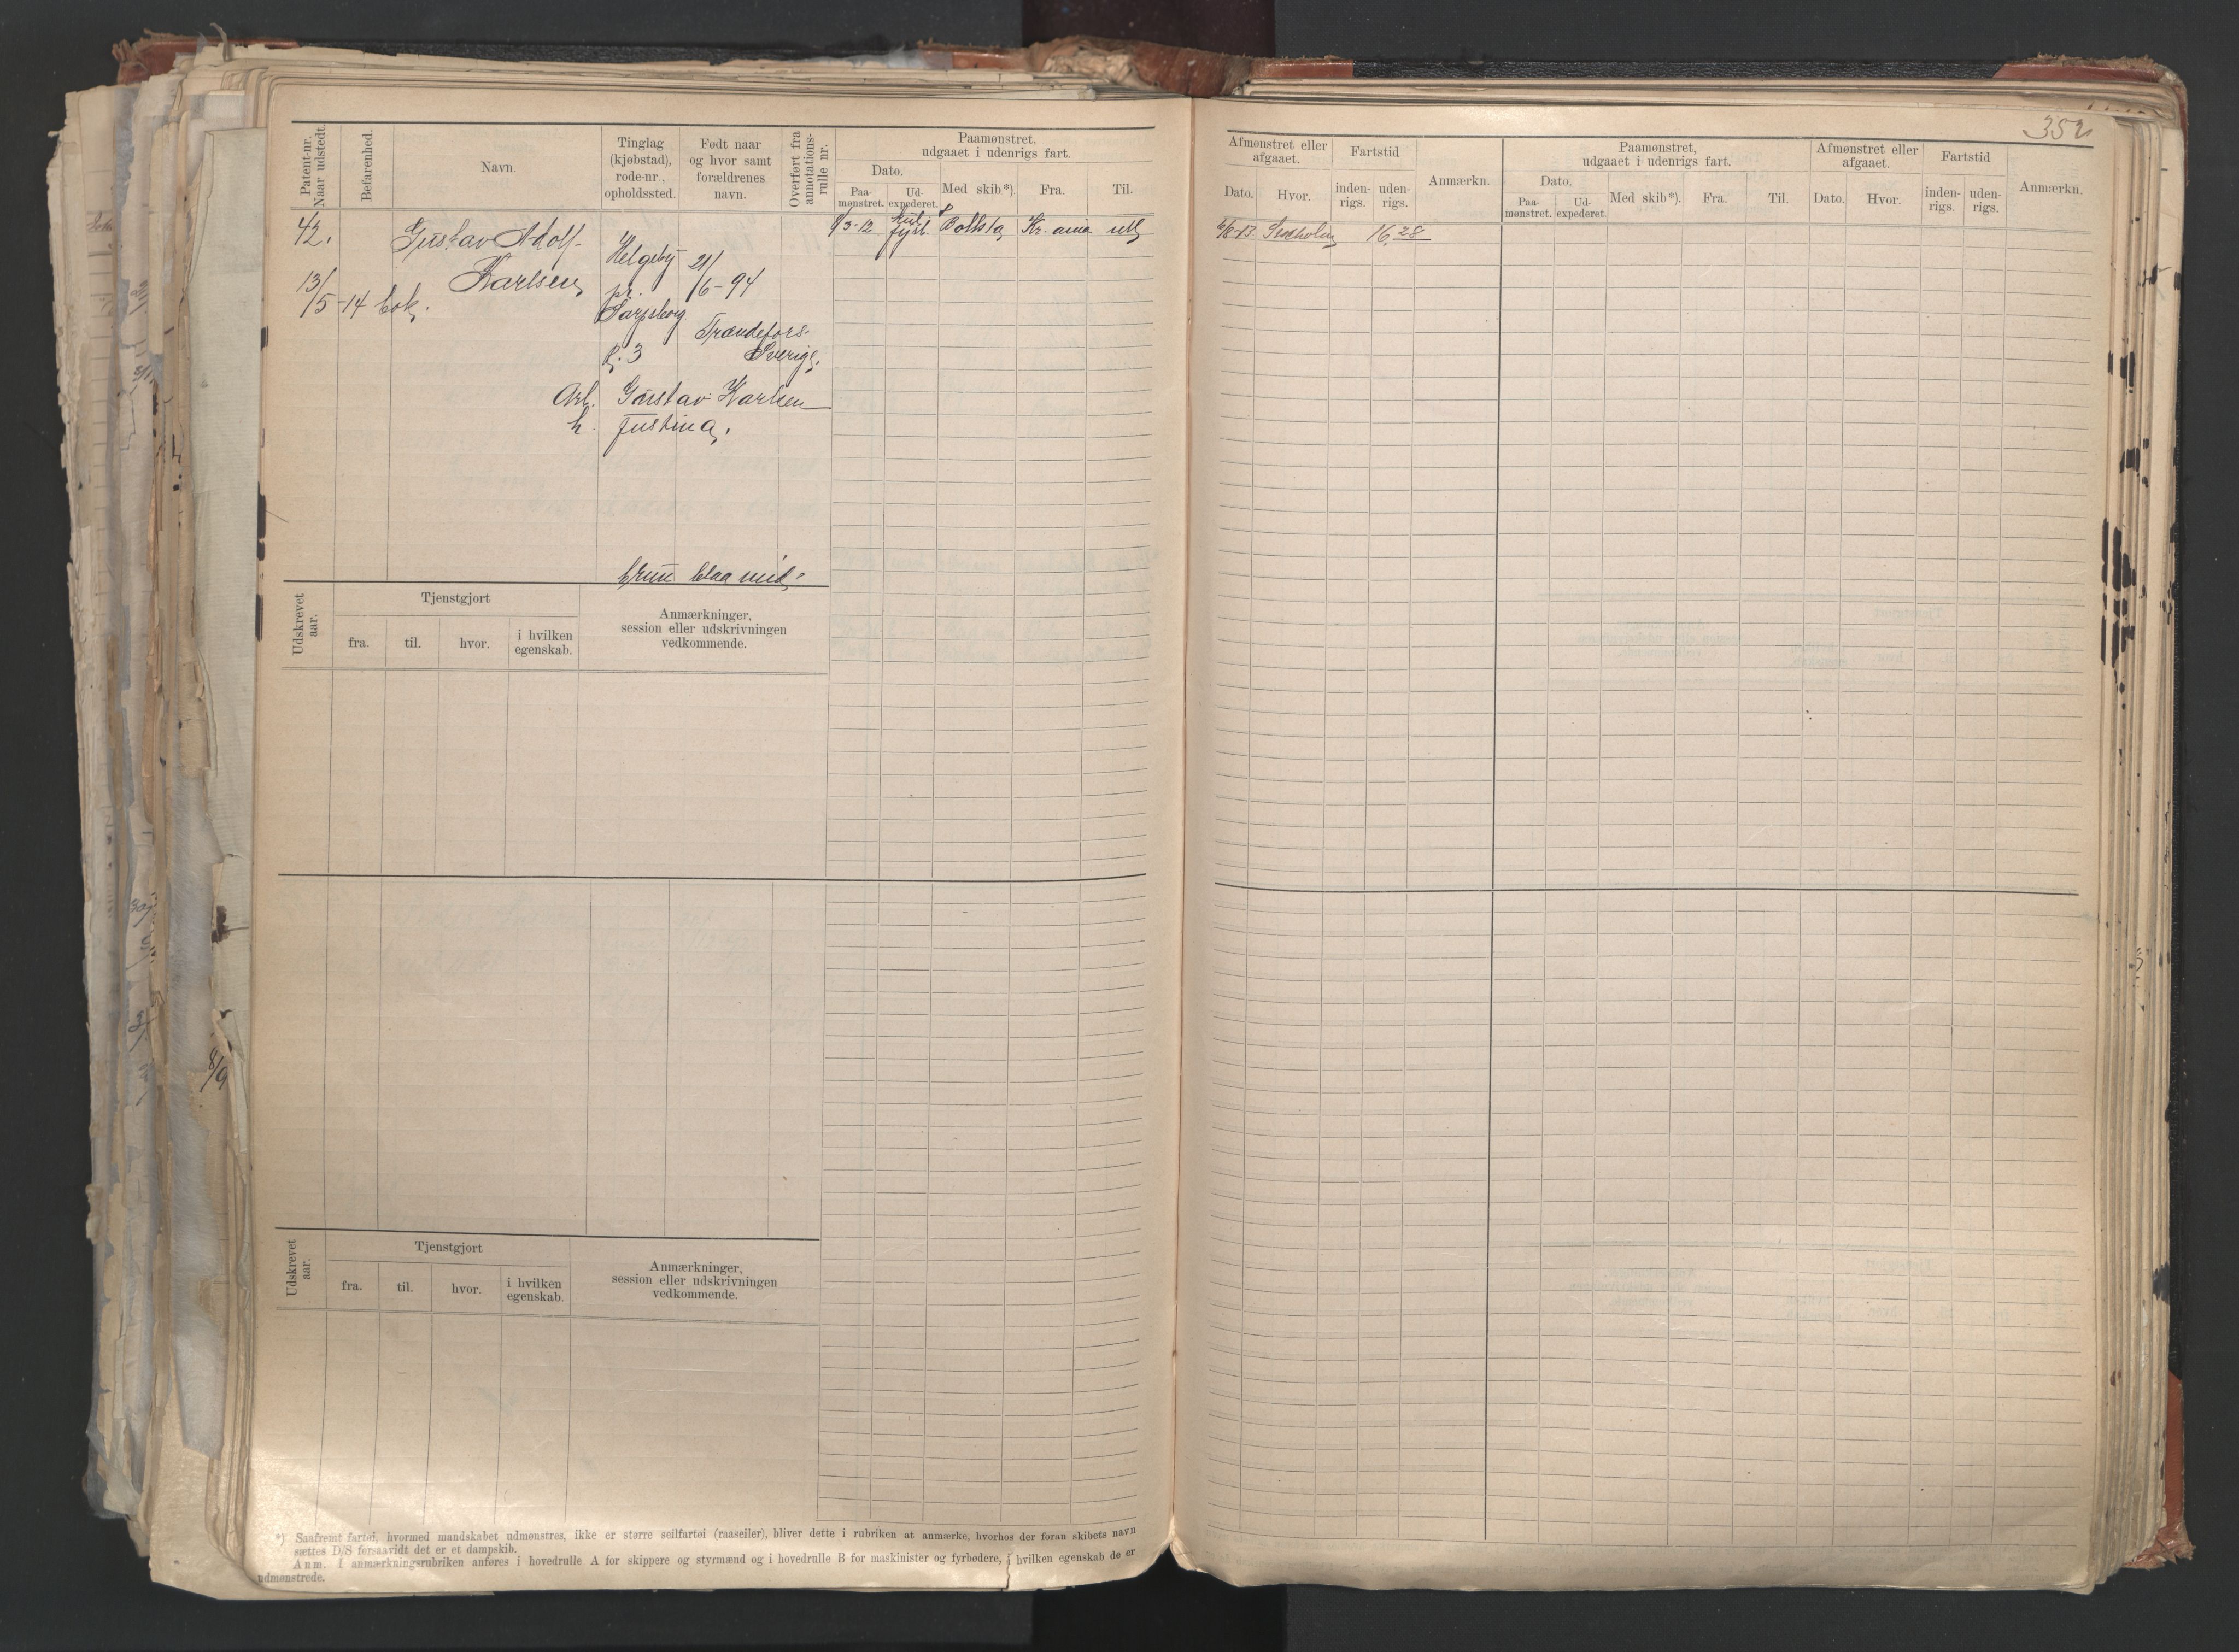 352
Patent-nr.
Naar udstedt.
Befarenhed.
Navn.
Tinglag
(kjøbstad),
rode-nr.,
opholdssted.
Født naar
og hvor samt
forældrenes
navn.
Overført fra
annotations-
rulle nr.
Paamønstret,
udgaaet i udenrigs fart.
Dato.
Paa-
mønstret.
Ud-
expederet.
Med skib*).
Fra.
Til.
42.
13/5-14
Gustav Adolf
Karlsen
Helgeby
pr.
Sarpsborg
R. 3
21/6-94
Sverige.
Arb. Gustav Karlsen
h. Justina.
brun blaa mid.
3-12
Kr.ania
Udskrevet
aar.
Tjenstgjort
fra.
til.
hvor.
i hvilken
egenskab.
Anmærkninger,
session eller udskrivningen
vedkommende.
Udskrevet
aar.
Tjenstgjort
fra.
til.
hvor.
i hvilken
egenskab.
Anmærkninger,
session eller udskrivningen
vedkommende.
*) Saafremt fartøi, hvormed mandskabet udmønstres, ikke er større seilfartøi (raaseiler), bliver dette i rubriken at anmærke, hvorhos der foran skibets navn
sættes D/S forsaavidt det er et dampskib.
Anm. I anmærkningsrubriken anføres i hovedrulle A for skippere og styrmænd og i hovedrulle B for maskinister og fyrbødere, i hvilken egenskab de er
udmønstrede.
Afmønstret eller
afgaaet.
Dato.
Hvor.
Fartstid
inden-
rigs.
uden-
rigs.
Anmærkn.
Paamønstret,
udgaaet i udenrigs fart.
Dato.
Paa-
mønstret.
Ud-
expederet.
Med skib*).
Fra.
Til.
Afmønstret eller
afgaaet.
Dato.
Hvor.
Fartstid
inden-
rigs.
uden-
rigs.
Anmærkn.
16.28
8/9